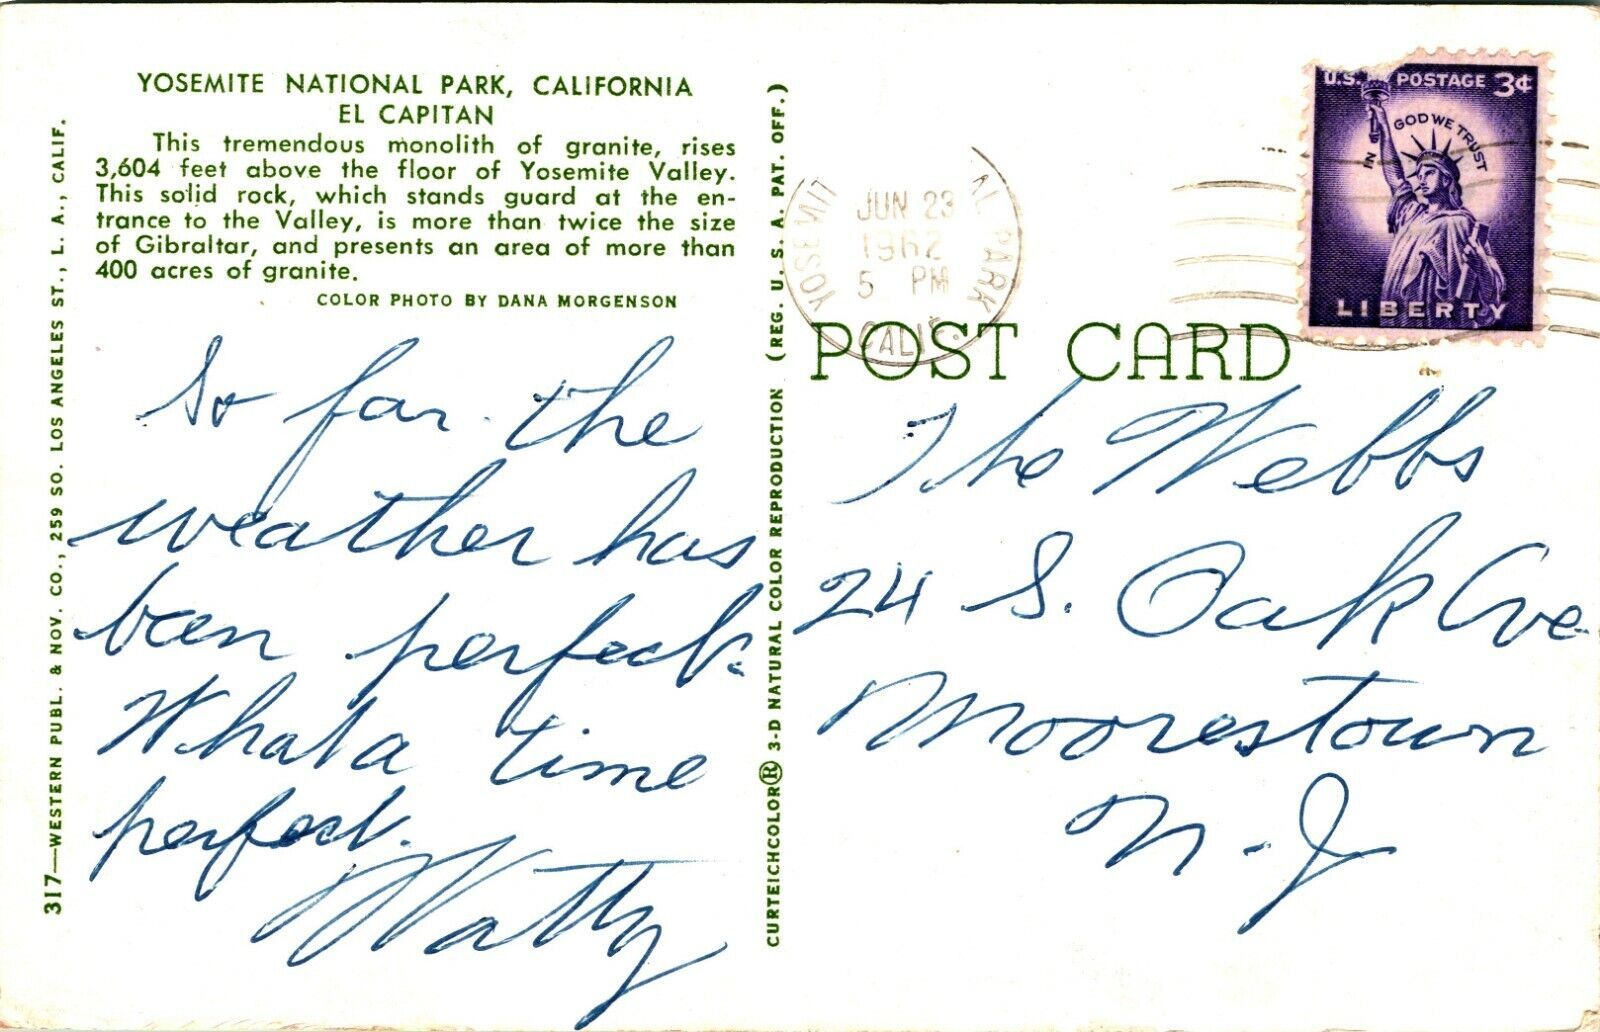 YOSEMITE NATIONAL PARK, CALIFORNIA
EL CAPITAN
This tremendous monolith of granite, rises
3,604 feet above the floor of Yosemite Valley.
This solid rock, which stands guard at the en-
trance to the Valley, is more than twice the size
of Gibraltar, and presents an area of more than
400 acres of granite.
COLOR PHOTO BY DANA MORGENSON
317—WESTERN PUBL. & NOV. CO., 259 SO. LOS ANGELES ST., L. A., CALIF.
So far the
weather has
been perfect.
What a time
perfect.
Watty
CURTEICHCOLOR® 3-D NATURAL COLOR REPRODUCTION (REG. U. S. A. PAT. OFF.)
YOSEMIT AL PARK
JUN 23
1962
5 PM
CALIF.
U.S. POSTAGE 3¢
IN GOD WE TRUST
LIBERTY
POST CARD
The Webbs
24 S. Oak Ave
Moorestown
N.J